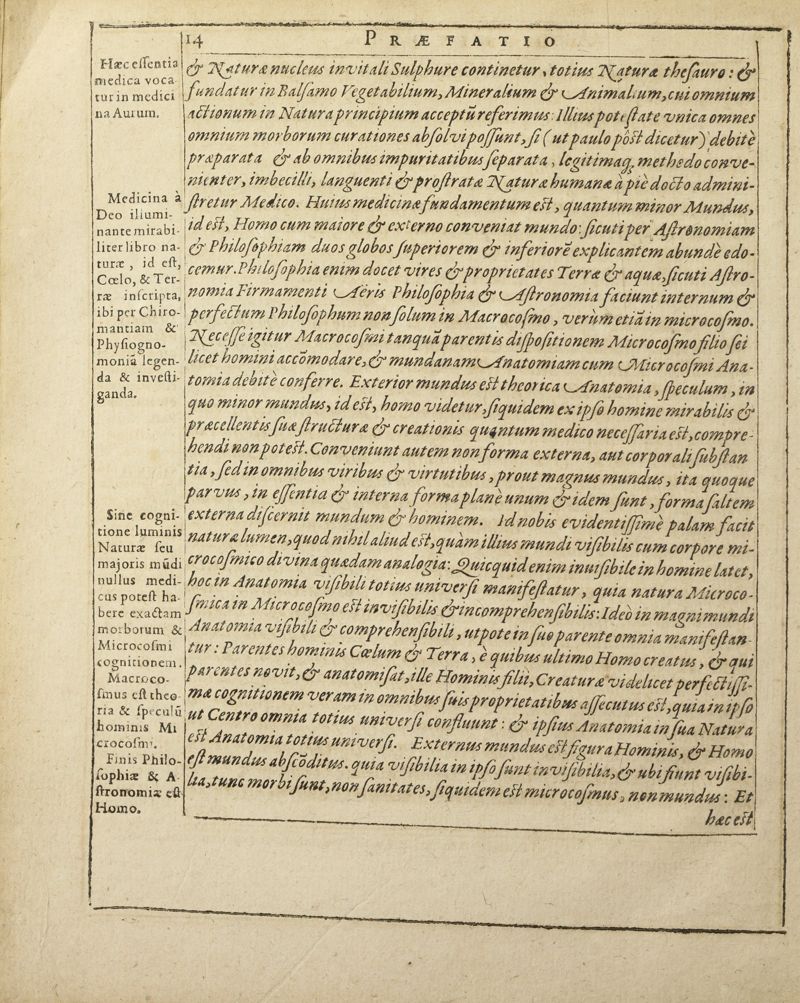 14 PRÆFATIO
Hæc essentia
medica voca
tur in medici
na Aurum.
Medicina à
Deo illumi-
nante mirabi-
liter libro na-
turæ, id est,
Cœlo, & Ter-
ræ inscripta,
ibi per Chiro-
mantiam &
Physiogno-
moniā legen-
da & investi-
ganda.
Sine cogni-
tione luminis
Naturæ seu
majoris mūdi
nullus medi-
cus potest ha-
bere exactam
morborum &
Microcosmi
cognitionem.
Macroco-
smus est theo
ria & speculū
hominis Mi
crocosmi.
Finis Philo-
sophiæ & A-
stronomiæ est
Homo.
& Naturæ nucleus in vitali Sulphure continetur, totius Naturæ thesauro: &
fundatur in Balsamo Vegetabilium, Mineralium & Animalium, cui omnium
actionum in Natura principium acceptū referimus: Illius potestate vnica omnes
omnium morborum curationes absolvi possunt, si (ut paulo pòst dicetur) debitè
præparata & ab omnibus impuritatibus separata, legitimaq; methodo conve-
nienter, imbecilli, languenti & prostratæ Naturæ humanæ à piè docto admini-
stretur Medico. Huius medicinæ fundamentum est, quantum minor Mundus,
id est, Homo cum maiore & externo conveniat mundo: sicuti per Astronomiam
& Philosophiam duos globos superiorem & inferiorē explicantem abundè edo-
cemur. Philosophia enim docet vires & proprietates Terræ & aquæ, sicuti Astro-
nomia Firmamenti Aëris Philosophia & Astronomia faciunt internum &
perfectum Philosophum non solum in Macrocosmo, verùm etiā in microcosmo.
Necesse igitur Macrocosmi tanquā parentis dispositionem Microcosmo filio sci
licet homini accōmodare, & mundanam Anatomiam cum Microcosmi Ana-
tomia debitè conferre. Exterior mundus est theorica Anatomia, speculum, in
quo minor mundus, id est, homo videtur, siquidem ex ipso homine mirabilis &
præcellentis suæ structuræ & creationis quantum medico necessaria est, compre-
hendi non potest. Conveniunt autem non forma externa, aut corporali substan
tia, sed in omnibus viribus & virtutibus, prout magnus mundus, ita quoque
parvus, in essentia & interna forma planè unum & idem sunt, forma saltem
externa discernit mundum & hominem. Id nobis evidentissimè palam facit
naturæ lumen, quod nihil aliud est, quàm illius mundi visibilis cum corpore mi-
crocosmico divina quædam analogia: Quicquid enim inuisibile in homine latet,
hoc in Anatomia visibili totius universi manifestatur, quia natura Microco-
smica in Microcosmo est invisibilis & incomprehensibilis: Ideo in magni mundi
Anatomia visibili & comprehensibili, utpote in suo parente omnia manifestan-
tur: Parentes hominis Cœlum & Terra, è quibus ultimo Homo creatus, & qui
parentes novit, & anatomisat, ille Hominis filii, Creaturæ videlicet perfectissi-
mæ cognitionem veram in omnibus suis proprietatibus assecutus est, quia in ipso
ut Centro omnia totius universi confluunt: & ipsius Anatomia in sua Natura
est Anatomia totius universi. Externus mundus est figura Hominis, & Homo
est mundus abscōditus. quia visibilia in ipso sunt invisibilia, & ubi fiunt visibi-
lia, tunc morbi sunt, non sanitates, siquidem est microcosmus, non mundus: Et
hæc est